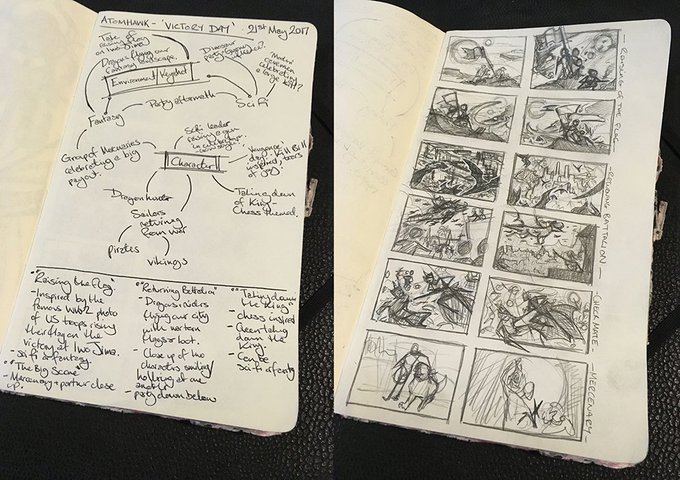 ATOMHAWK - 'VICTORY DAY' 21st May 2017
Take of
raising flag
on Iwo Jima.
Dragons flying over
fantasy landscape.
Dinosaur
party
Environment / Keyshot
Party aftermath
Sci Fi
celebrating
a large kill?
Fantasy
Group of Mercenaries
celebrating a big
payout.
Sci fi leader
raising a gun
Character
Vengeance
day. Kill Bill
inspired, tears
of joy
Taking down
of King -
Chess themed.
Dragon hunter
Sailors
returning
from war
pirates
vikings
"Raising the Flag"
- Inspired by the
famous WW2 photo
of US troops rising
their flag on the
victory at Iwo Jima.
- Sci fi or fantasy.
"The Big Score"
- Mercenary + partner close
up.
"Returning Battalion"
- Dragon riders
flying over city
with war torn
flags or loot.
- Close up of two
characters smiling/
hollering at one
another
- party down below
"Taking down
the King"
- chess inspired
- Queen taking
down the
King.
- Can be
sci fi or fantasy
- RAISING OF THE FLAG -
- RETURNING BATTALION -
- CHECKMATE -
- MERCENARY -